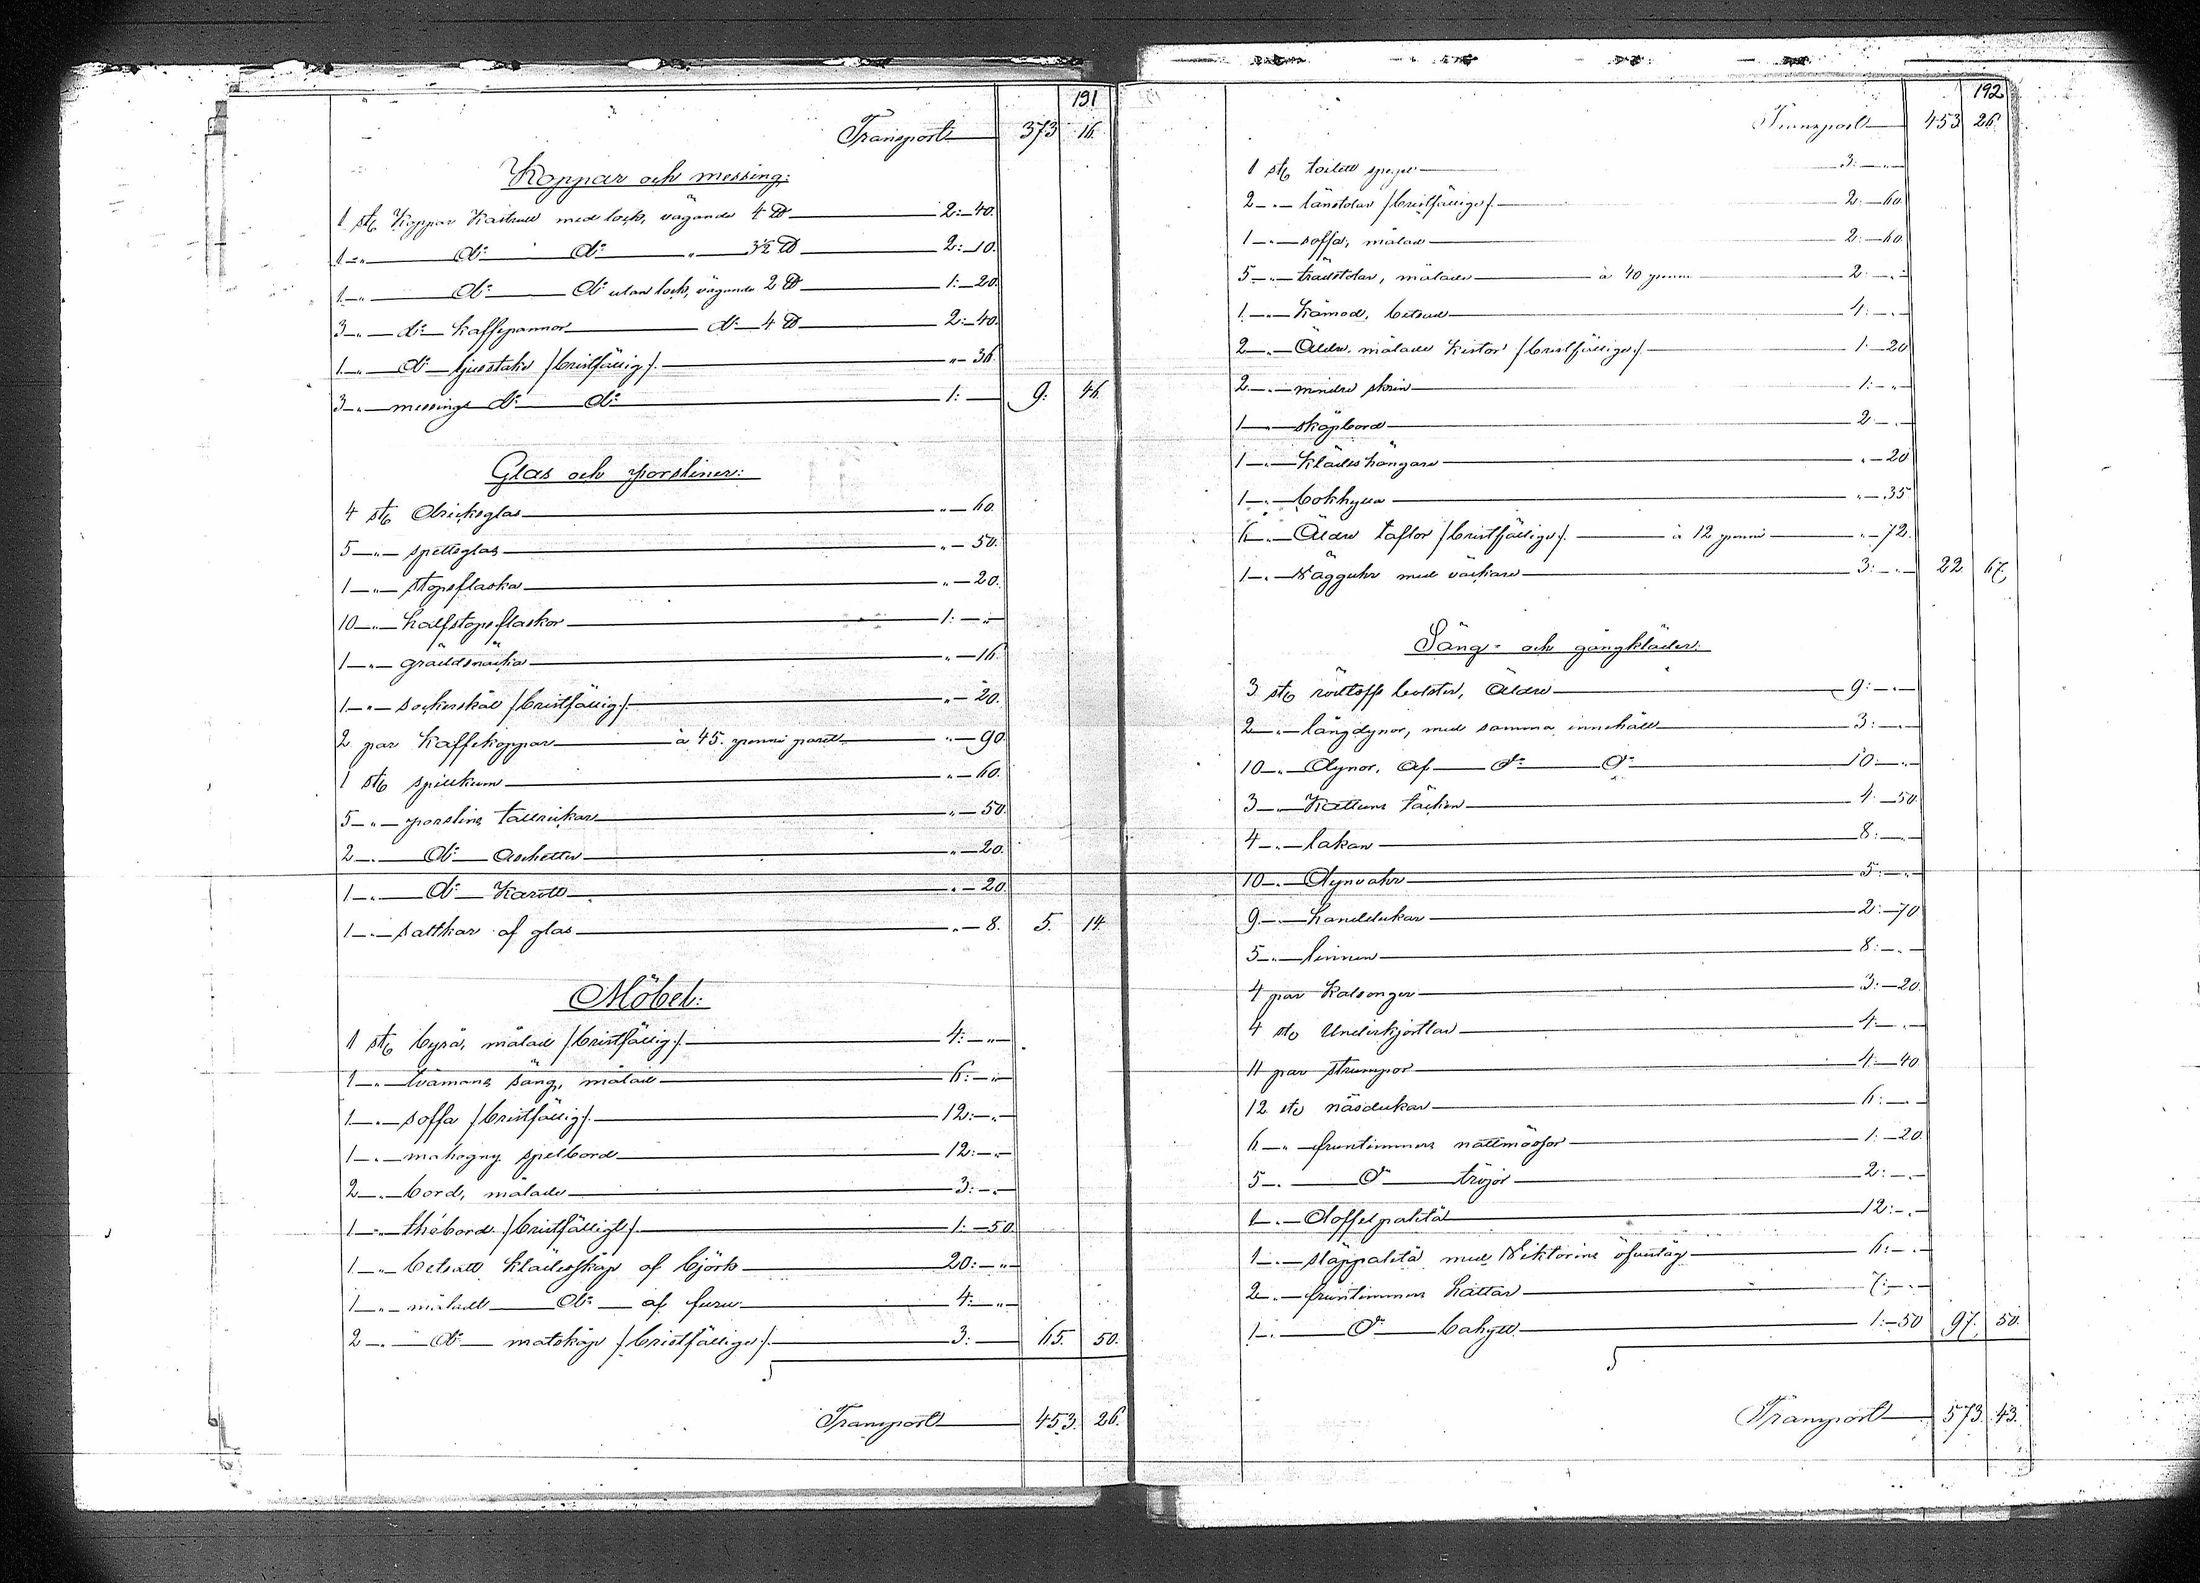 191
Transport 373 16.
Koppar och messing:
1 st. Koppar Kastrull med lock, vägande 4 ℔ 2:40.
1 " d:o d:o " 3½ ℔ 2:10.
1 " d:o d:o utan lock, vägande 2 ℔ 1:20.
3 " d:o Kaffepannor d:o 4 ℔ 2:40.
1 " d:o ljusstake /bristfällig/. " 36.
3 " messings d:o d:o 1: — 9. 46.
Glas och porsliner:
4 st. dricksglas " 60.
5 " spetsglas " 50.
1 " stopsflaska " 20.
10 " halfstopsflaskor 1: "
1 " gräddsnäcka " 16.
1 " sockerskål /bristfällig/. " 20.
2 par Kaffekoppar à 45. penni paret " 90.
1 st. spillkum " 60.
5 " porslins tallrikar " 50.
2 " d:o Aschetter " 20.
1 " d:o Karott " 20.
1 " saltkar af glas " 8. 5. 14.
Möbel:
1 st. byrå, målad /bristfällig/. 4: "
1 " tvåmans säng, målad 6: "
1 " soffa /bristfällig/. 12: "
1 " mahogny spelbord 12: "
2 " bord, målade 3: "
1 " thébord /bristfälligt/. 1: 50.
1 " betsadt klädesskåp af björk 20: "
1 " måladt d:o af furu 4: "
2 " d:o matskåp /bristfällige/. 3: 65. 50.
Transport 453. 26.
192
Transport 453 26.
1 st. toilett spegel 3: "
2 " länstolar /bristfällige/. 2: 60.
1 " soffa, målad 2: 60.
5 " trädstolar, målade à 40 penni 2: "
1 " Kämod, betsad 4: "
2 " Äldre målade Kistor /bristfällige/. 1: 20
2 " mindre skrin 1: "
1 " skåpbord 2 "
1 " Klädeshängare " 20
1 " bokhylla " 35
6 " Äldre taflor /bristfällige/. à 12 penni " 72.
1 " Vägguhr med väckare 3: " 22 67.
Säng- och gångkläder:
3 st. bolster, Äldre 9: "
2 " långdynor, med samma innehåll 3: "
10 " Dynor, af d:o d:o 10: "
3 " Kattuns täcken 4: 50.
4 " lakan 8: "
10 " Dynvahr 5: "
9 " handdukar 2: 70
5 " linnen 8: "
4 par Kalsonger 3: 20.
4 st. Underkjortlar 4: "
11 par strumpor 4: 40
12 st. näsdukar 6: "
6 " fruntimmers nattmössor 1: 20.
5 " d:o tröjor 2: "
1 " Doffelpaletå 12: "
1 " släppaletå med Viktorine öfvertåg 6: "
2 " fruntimmers hattar 7: "
1 " d:o bahytt 1: 50 97. 50.
Transport 573. 43.